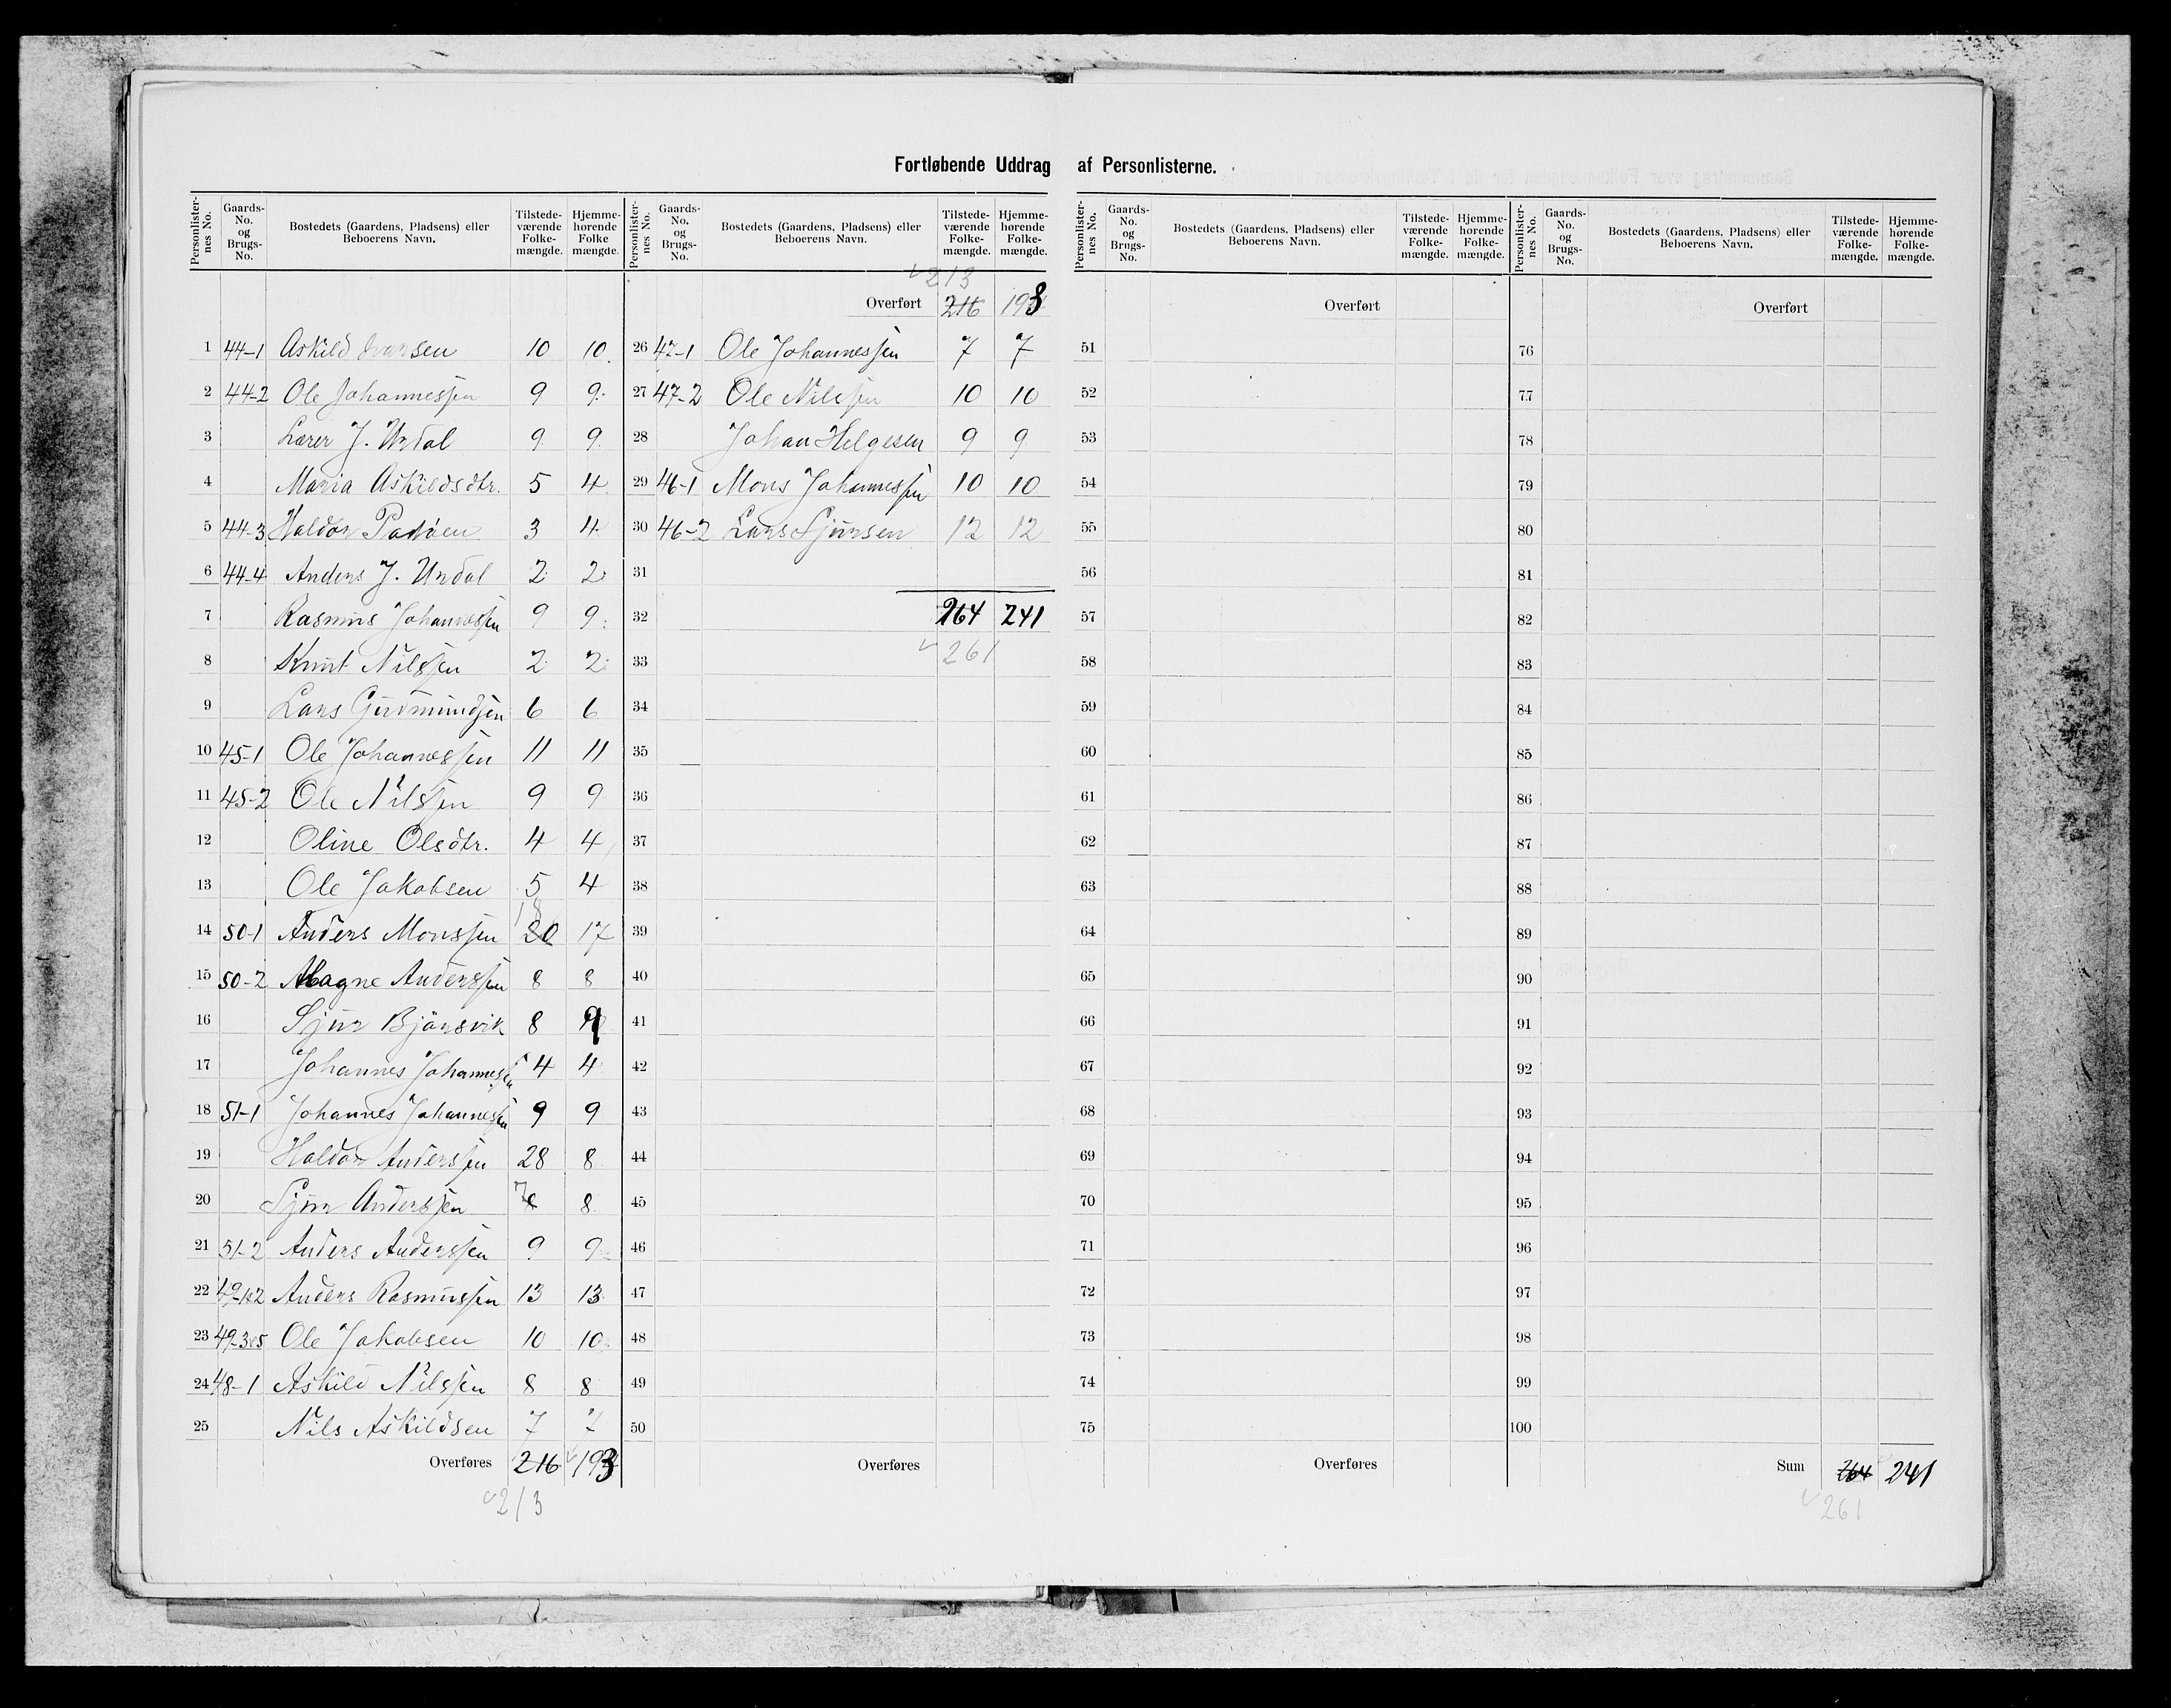 Fortløbende Uddrag af Personlisterne.
Personlister-nes No. Gaards-No. og Brugs-No. Bostedets (Gaardens, Pladsens) eller Beboerens Navn. Tilstede-værende Folke-mængde. Hjemme-hørende Folke mængde.
1 44-1 Askild Ivarsen 10 10
2 44-2 Ole Johannessen 9 9
3 Lærer J. Urdal 9 9
4 Maria Askildsdtr. 5 4
5 44-3 Haldor 3 4
6 44-4 Anders J. Urdal 2 2
7 Rasmus Johannessen 9 9
8 Knut Nilssen 2 2
9 Lars Gudmundsen 6 6
10 45-1 Ole Johannessen 11 11
11 45-2 Ole Nilssen 9 9
12 Oline Olsdtr. 4 4
13 Ole Jakobsen 5 4
18
14 50-1 Anders Monssen 20 17
15 50-2 Magne Anderssen 8 8
16 Sjur Bjørsvik 8 9
17 Johannes Johannessen 4 4
18 51-1 Johannes Johannessen 9 9
19 Haldor Anderssen 28 8
20 Sjur Anderssen 7 8 8
21 51-2 Anders Anderssen 9 9
22 49-1&2 Anders Rasmussen 13 13
23 49-3&5 Ole Jakobsen 10 10
24 48-1 Askild Nilssen 8 8
25 Nils Askildsen 7 7
Overføres 216 193
213
Personlister-nes No. Gaards-No. og Brugs-No. Bostedets (Gaardens, Pladsens) eller Beboerens Navn. Tilstede-værende Folke-mængde. Hjemme-hørende Folke-mængde.
213
Overført 216 193
26 47-1 Ole Johannessen 7 7
27 47-2 Ole Nilssen 10 10
28 Johan Helgesen 9 9
29 46-1 Mons Johannessen 10 10
30 46-2 Lars Sjursen 12 12
31
32 264 241
33 261
34
35
36
37
38
39
40
41
42
43
44
45
46
47
48
49
50
Overføres
Personlister-nes No. Gaards-No. og Brugs-No. Bostedets (Gaardens, Pladsens) eller Beboerens Navn. Tilstede-værende Folke-mængde. Hjemme-hørende Folke-mængde.
Overført
51
52
53
54
55
56
57
58
59
60
61
62
63
64
65
66
67
68
69
70
71
72
73
74
75
Overføres
Personlister-nes No. Gaards-No. og Brugs-No. Bostedets (Gaardens, Pladsens) eller Beboerens Navn. Tilstede-værende Folke-mængde. Hjemme-hørende Folke-mængde.
Overført
76
77
78
79
80
81
82
83
84
85
86
87
88
89
90
91
92
93
94
95
96
97
98
99
100
Sum 264 241
261